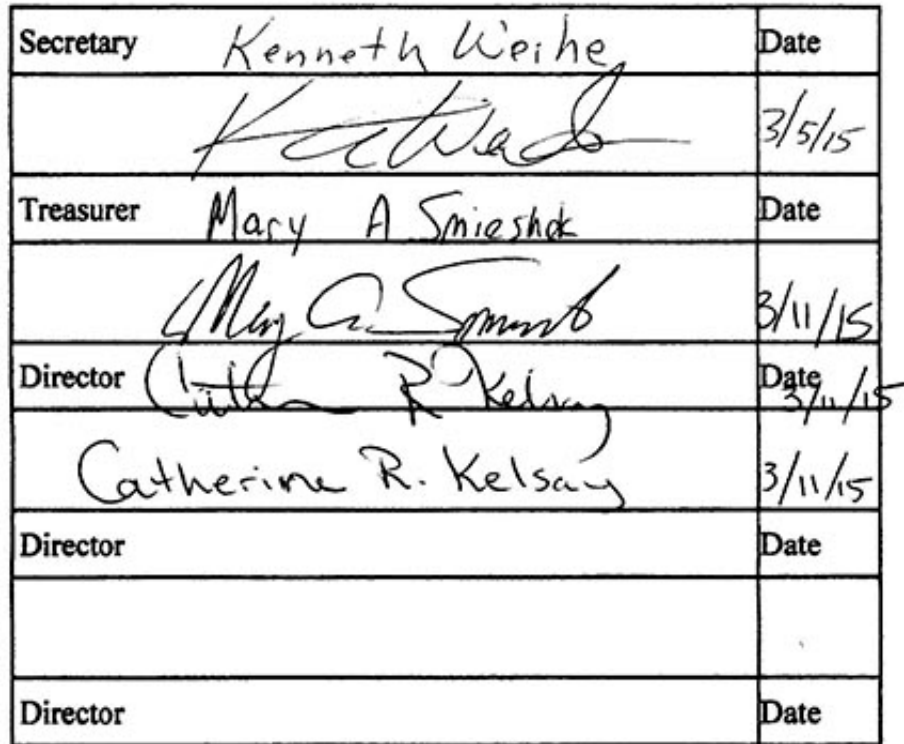 Secretary Kenneth Weihe Date
3/5/15
Treasurer Mary A Smieshek Date
3/11/15
Director R Kelsay Date 3/11/15
Catherine R. Kelsay 3/11/15
Director Date
Director Date